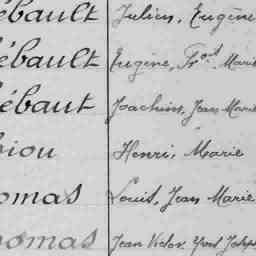 ébault Julien, Eugène
ébault Eugène, Frçois Marie
ébaut Joachim, Jean Marie
biou Henri, Marie
omas Louis, Jean Marie
omas Jean Victor Yves Joseph